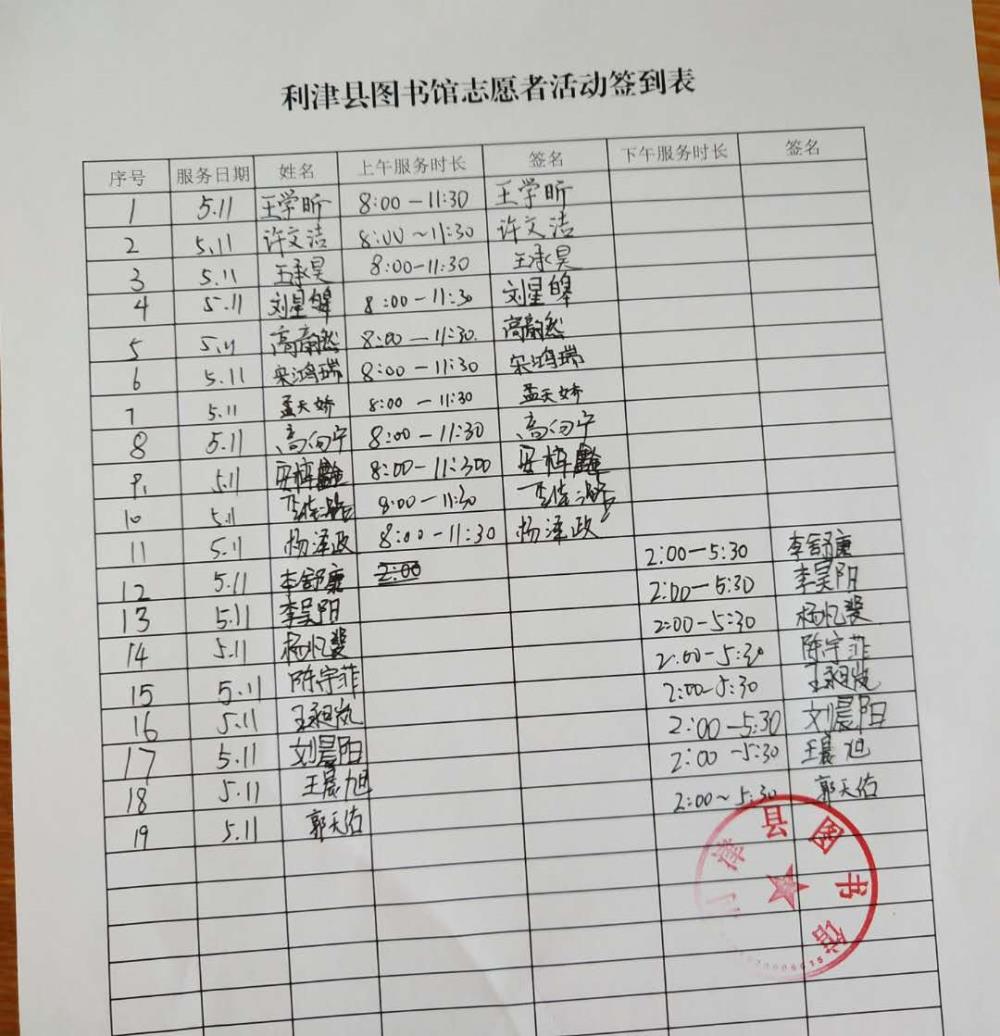 利津县图书馆志愿者活动签到表
序号 服务日期 姓名 上午服务时长 签名 下午服务时长 签名
1 5.11 王学昕 8:00-11:30 王学昕
2 5.11 许文洁 8:00~11:30 许文洁
3 5.11 王承昊 8:00-11:30 王承昊
4 5.11 刘星皞 8:00-11:30 刘星皞
5 5.11 8:00-11:30.
6 5.11 宋鸿瑞 8:00-11:30 宋鸿瑞
7 5.11 孟天娇 8:00-11:30 孟天娇
8 5.11 高向宁 8:00-11:30 高向宁
9. 5.11 8:00-11:300
10 5.11 8:00-11:30
11 5.11 杨泽政 8:00-11:30 杨泽政
12 5.11 李舒康 2:00 2:00-5:30 李舒康
13 5.11 李昊阳 2:00-5:30 李昊阳
14 5.11 杨忆斐 2:00-5:30 杨忆斐
15 5.11 陈宇菲 2:00-5:30 陈宇菲
16 5.11 2:00-5:30
17 5.11 刘晨阳 2:00-5:30 刘晨阳
18 5.11 王晨旭 2:00-5:30 王晨旭
19 5.11 郭天佑 2:00~5:30 郭天佑
利津县图书馆